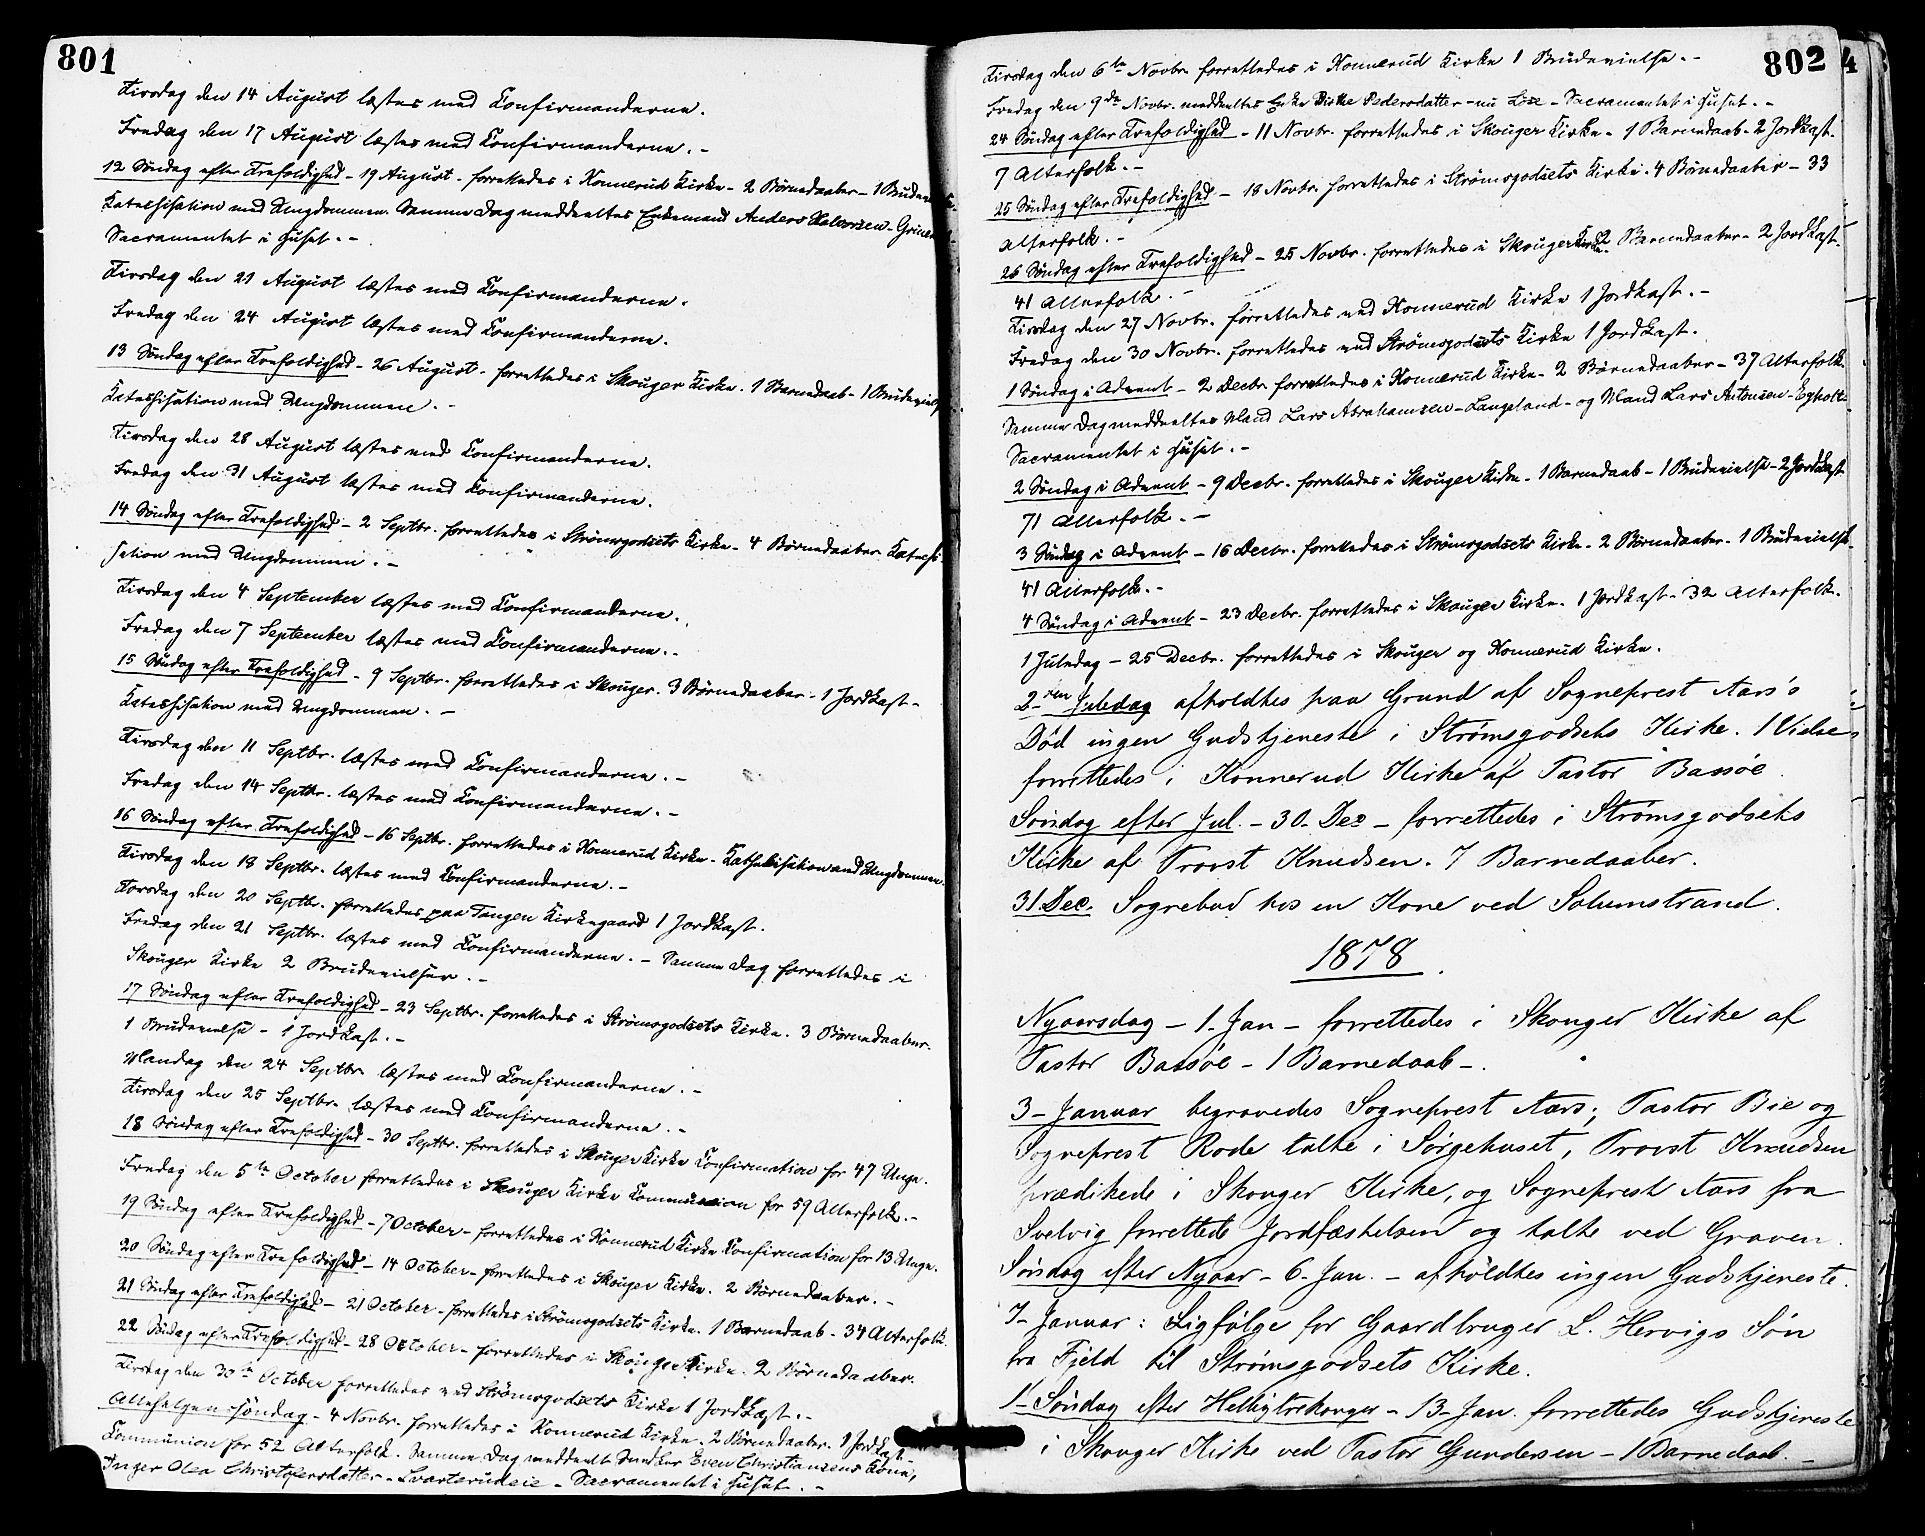 801
Tirsdag den 14 August læstes med Confirmanderne.
Fredag den 17 August læstes med Confirmanderne. -
12 Søndag efter Trefoldighed - 19 August - forrettedes i Konnerud Kirke - 2 Børnedaaber - 1 Brudevielse.
Katechisation med Ungdommen. Samme Dag meddeeltes Enkemand Anders Halvorsen - Grinen
Sacramentet i Huset. -
Tirsdag den 21 August læstes med Confirmanderne.
Fredag den 24 August læstes med Confirmanderne.
13 Søndag efter Trefoldighed - 26 August - forrettedes i Skouger Kirke. 1 Barnedaab - 1 Brudevielse
Katechisation med Ungdommen. -
Tirsdag den 28 August læstes med Confirmanderne.
Fredag den 31 August læstes med Confirmanderne.
14 Søndag efter Trefoldighed - 2 Septbr. forrettedes i Strømsgodsets Kirke - 4 Børnedaaber Katechi-
sation med Ungdommen. -
Tirsdag den 4 September læstes med Confirmanderne.
Fredag den 7 September læstes med Confirmanderne. -
15 Søndag efter Trefoldighed - 9 Septbr. forrettedes i Skouger. 3 Børnedaaber - 1 Jordkast -
Katechisation med Ungdommen. -
Tirsdag den 11 Septbr. læstes med Confirmanderne. -
Fredag den 14 Septbr. læstes med Confirmanderne. -
16 Søndag efter Trefoldighed - 16 Septbr. forrettedes i Konnerud Kirke - Kathekisation med Ungdommen.
Tirsdag den 18 Septbr. læstes med Confirmanderne. -
Torsdag den 20 Septbr. forrettedes paa Tangen Kirkegaard 1 Jordkast.
Fredag den 21 Septbr. læstes med Confirmanderne. - Samme Dag forrettedes i
Skouger Kirke 2 Brudevielser. -
17 Søndag efter Trefoldighed - 23 Septbr. forrettedes i Strømsgodsets Kirke. 3 Børnedaaber.
1 Brudevielse - 1 Jordkast. -
Mandag den 24 Septbr læstes med Confirmanderne. -
Tirsdag den 25 Septbr. læstes med Confirmanderne. -
18 Søndag efter Trefoldighed - 30 Septbr. forrettedes i Skouger Kirke Confirmation for 47 Unge.
Fredag den 5te October forrettedes i Skouger Kirke Communion for 59 Alterfolk. -
19 Søndag efter Trefoldighed - 7 October - forrettedes i Konnerud Kirke Confirmation for 13 Unge.
20 Søndag efter Trefoldighed - 14 October - forrettedes i Skouger Kirke. 2 Børnedaaber. -
21 Søndag efter Trefoldighed - 21 October - forrettedes i Strømsgodsets Kirke. 1 Barnedaab - 34 Alterfolk
22 Søndag efter Trefoldighed - 28 October - forrettedes i Skouger Kirke. 2 Børnedaaber.
Tirsdag den 30te October forrettedes ved Strømsgodsets Kirke 1 Jordkast. -
Allehelgen Søndag - 4 Novbr. forrettedes i Konnerud Kirke. 2 Børnedaaber. 1 Jordkast -
Communion for 52 Alterfolk. Samme Dag meddeelt Snedker Even Christiansens Kone,
Inger Olea Christofersdatter - Svarterudeie - Sacramentet i Huset. -
802
4
Tirsdag den 6te Novbr forrettedes i Konnerud Kirke 1 Brudevielse. -
Fredag den 9de Novbr. meddeeltes Enke Pedersdatter - Sacramentet i Huset. -
24 Søndag efter Trefoldighed - 11 Novbr. forrettedes i Skouger Kirke - 1 Barnedaab - 2 Jordkast.
7 Alterfolk. -
25 Søndag efter Trefoldighed - 18 Novbr. forrettedes i Strømsgodsets Kirke. 4 Børnedaaber - 33
Alterfolk. -
26 Søndag efter Trefoldighed - 25 Novbr. forrettedes i Skouger Kirke 2 Børnedaaber - 2 Jordkast.
41 Alterfolk. -
Tirsdag den 27 Novbr. forrettedes ved Konnerud Kirke 1 Jordkast. -
Fredag den 30 Novbr. forrettedes ved Strømsgodsets Kirke 1 Jordkast.
1 Søndag i Advent - 2 Decbr forrettedes i Konnerud Kirke - 2 Børnedaaber - 37 Alterfolk
Samme Dag meddeeltes Mand Lars Abrahamsen - Langeland - og Mand Lars Antonsen - Egholt
Sacramentet i Huset. -
2 Søndag i Advent - 9 Decbr. forrettedes i Skouger Kirke - 1 Barnedaab - 1 Brudevielse - 2 Jordkast
71 Alterfolk. -
3 Søndag i Advent - 16 Decbr. forrettedes i Strømsgodsets Kirke - 2 Børnedaaber - 1 Brudevielse.
41 Alterfolk. -
4 Søndag i Advent - 23 Decbr. forrettedes i Skouger Kirke. 1 Jordkast - 32 Alterfolk.
1 Juledag - 25 Decbr. forrettedes i Skouger og Konnerud Kirke.
2den Juledag afholdtes paa Grund af Sogneprest Aars's
Død ingen Gudstjeneste i Strømsgodsets Kirke. 1 Vielse
forrettedes i Konnerud Kirke af Pastor Bassøe.
Søndag efter Jul. - 30. Dec - forrettedes i Strømsgodsets
Kirke af Provst Knudsen. 7 Barnedaaber.
31. Dec. Sognebud hos en Kone ved Solumstrand.
1878.
Nyaarsdag - 1. Jan - forrettedes i Skouger Kirke af
Pastor Bassøe - 1 Barnedaab -.
3 - Januar begravedes Sogneprest Aars; Pastor Bie og
Sogneprest Rode talte i Sørgehuset, Provst Knudsen
prædikede i Skouger Kirke, og Sogneprest Aars fra
Svelvig forrettede Jordfæstelsen og talte ved Graven.
Søndag efter Nyaar - 6. Jan. - afholdtes ingen Gudstjeneste.
7 - Januar: Ligfølge for Gaardbruger L. Hervigs Søn
fra Fjeld til Strømsgodsets Kirke.
1- Søndag efter Helligtrekonger - 13 - Jan. forrettedes Gudstjeneste
i Skouger Kirke ved Pastor Gundersen - 1 Barnedaab. -